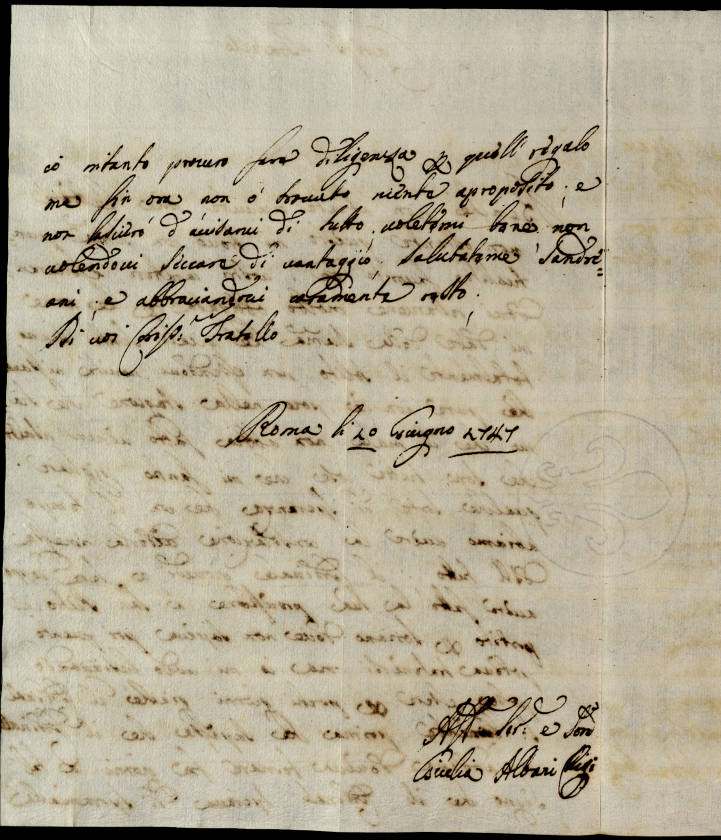 io intanto procuro fare diligenza p quell regalo
ma fin ora non ò trovato niente aproposito, e
non lascierò d'avvisarvi di tutto, voletemi bene non
volendovi seccare di vantaggio, salutateme Sandri=
ani, e abbraciandovi caramente resto.
Di voi Cariss.mo Fratello
Roma li 10 Giugno 1747
Aff.ma Ser.a e Sore
Cicilia Albari Chigi